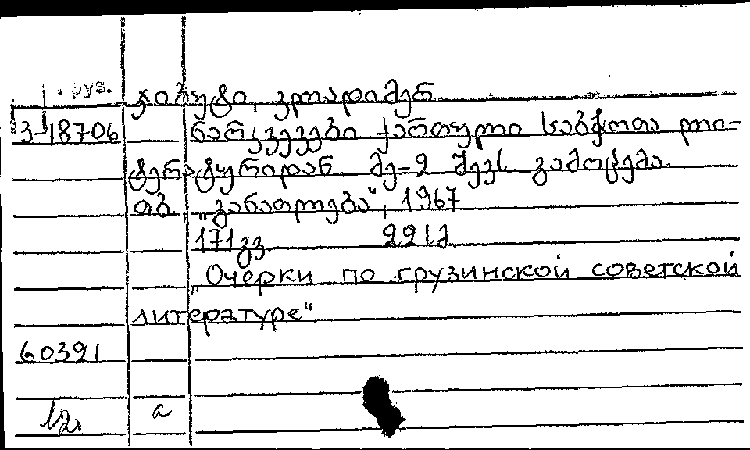 . груз.
ჯიბუტი, ვლადიმერ
3-18706 ნარკვევები ქართული საბჭოთა ლი-
ტერატურიდან მე-2 შევს. გამოცემა.
თბ., „განათლება", 1967
171 გვ. 22 სმ
„Очерки по грузинской советской
литературе"
60391
а